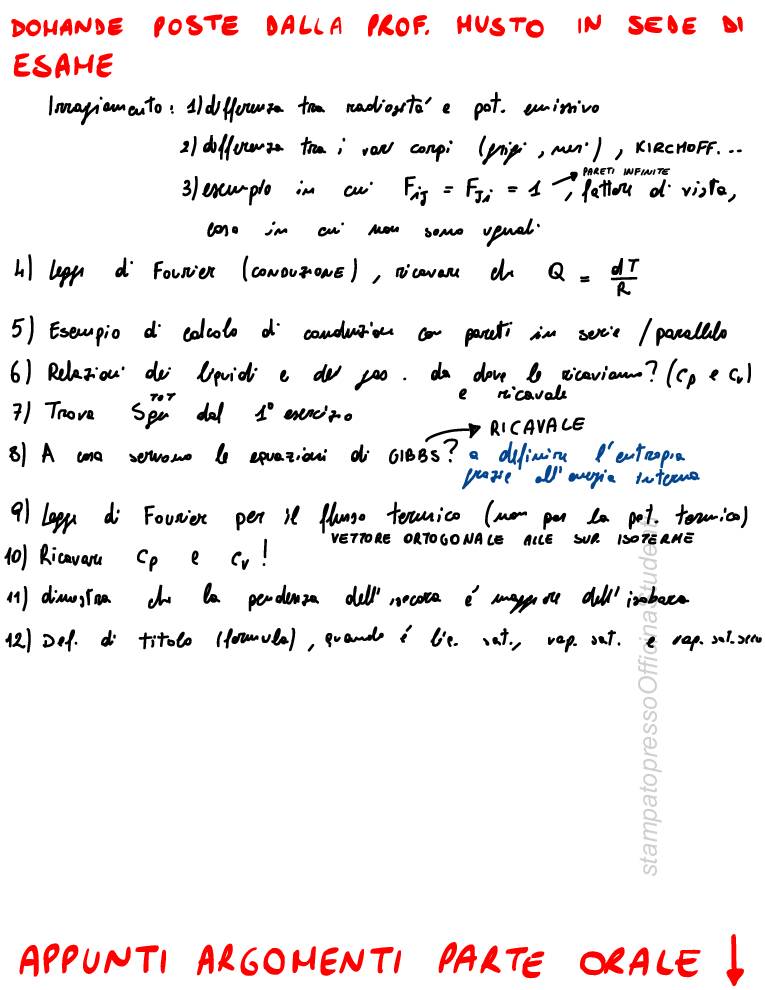 DOMANDE POSTE DALLA PROF. MUSTO IN SEDE DI
ESAME
Irragiamento: 1) differenza tra radiosità e pot. emissivo
2) differenza tra i vari corpi (grigi, neri), KIRCHOFF...
PARETI INFINITE
3) esempio in cui Fij = Fji = 1 → , fattore di vista,
caso in cui non sono uguali
4) Legge di Fourier (CONDUZIONE), ricavare che Q = dT/R
5) Esempio di calcolo di conduzione con pareti in serie / parallelo
6) Relazioni dei liquidi e dei gas. da dove le ricaviamo? (cp e cv)
e ricavale
7) Trova Sgen TOT del 1° esercizio
RICAVALE
8) A cosa servono le equazioni di GIBBS? a definire l'entropia
grazie all'energia interna
9) Legge di Fourier per il flusso termico (non per la pot. termica)
VETTORE ORTOGONALE ALLE SUP ISOTERME
10) Ricavare cp e cv!
11) dimostra che la pendenza dell'isocora é maggiore dell'isobara
12) Def. di titolo (formula), quando é liq. sat., vap. sat. e vap. sat. secco
stampatopressoOfficinaStudenti
APPUNTI ARGOMENTI PARTE ORALE ↓